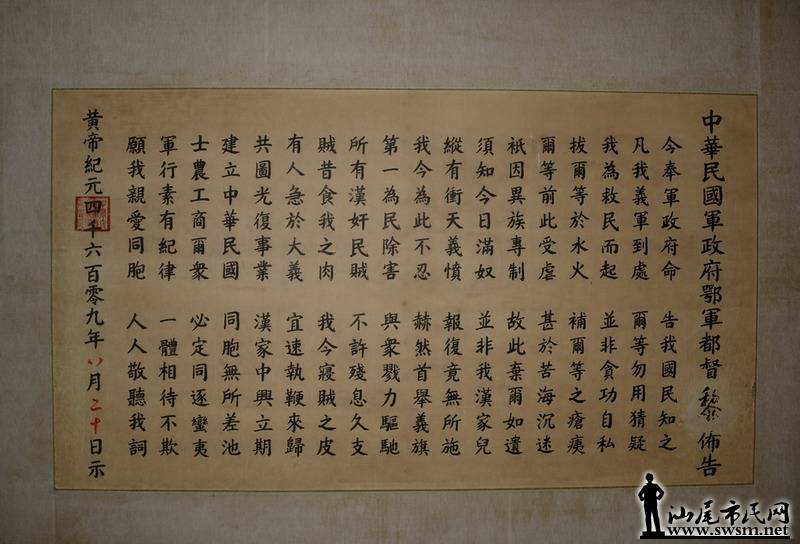 中華民國軍政府鄂軍都督黎佈告
今奉軍政府命 告我國民知之
凡我義軍到處 爾等勿用猜疑
我為救民而起 並非貪功自私
拔爾等於水火 補爾等之瘡痍
爾等前此受虐 甚於苦海沉迷
祇因異族專制 故此棄爾如遺
須知今日滿奴 並非我漢家兒
縱有衝天義憤 報復竟無所施
我今為此不忍 赫然首舉義旗
第一為民除害 與衆戮力驅馳
所有漢奸民賊 不許殘息久支
賊昔食我之肉 我今寢賊之皮
有人急於大義 宜速執鞭來歸
共圖光復事業 漢家中興立期
建立中華民國 同胞無所差池
士農工商爾衆 必定同逐蠻夷
軍行素有紀律 一體相待不欺
願我親愛同胞 人人敬聽我詞
黃帝紀元四千六百零九年八月二十日示
汕尾市民网
www.swsm.net